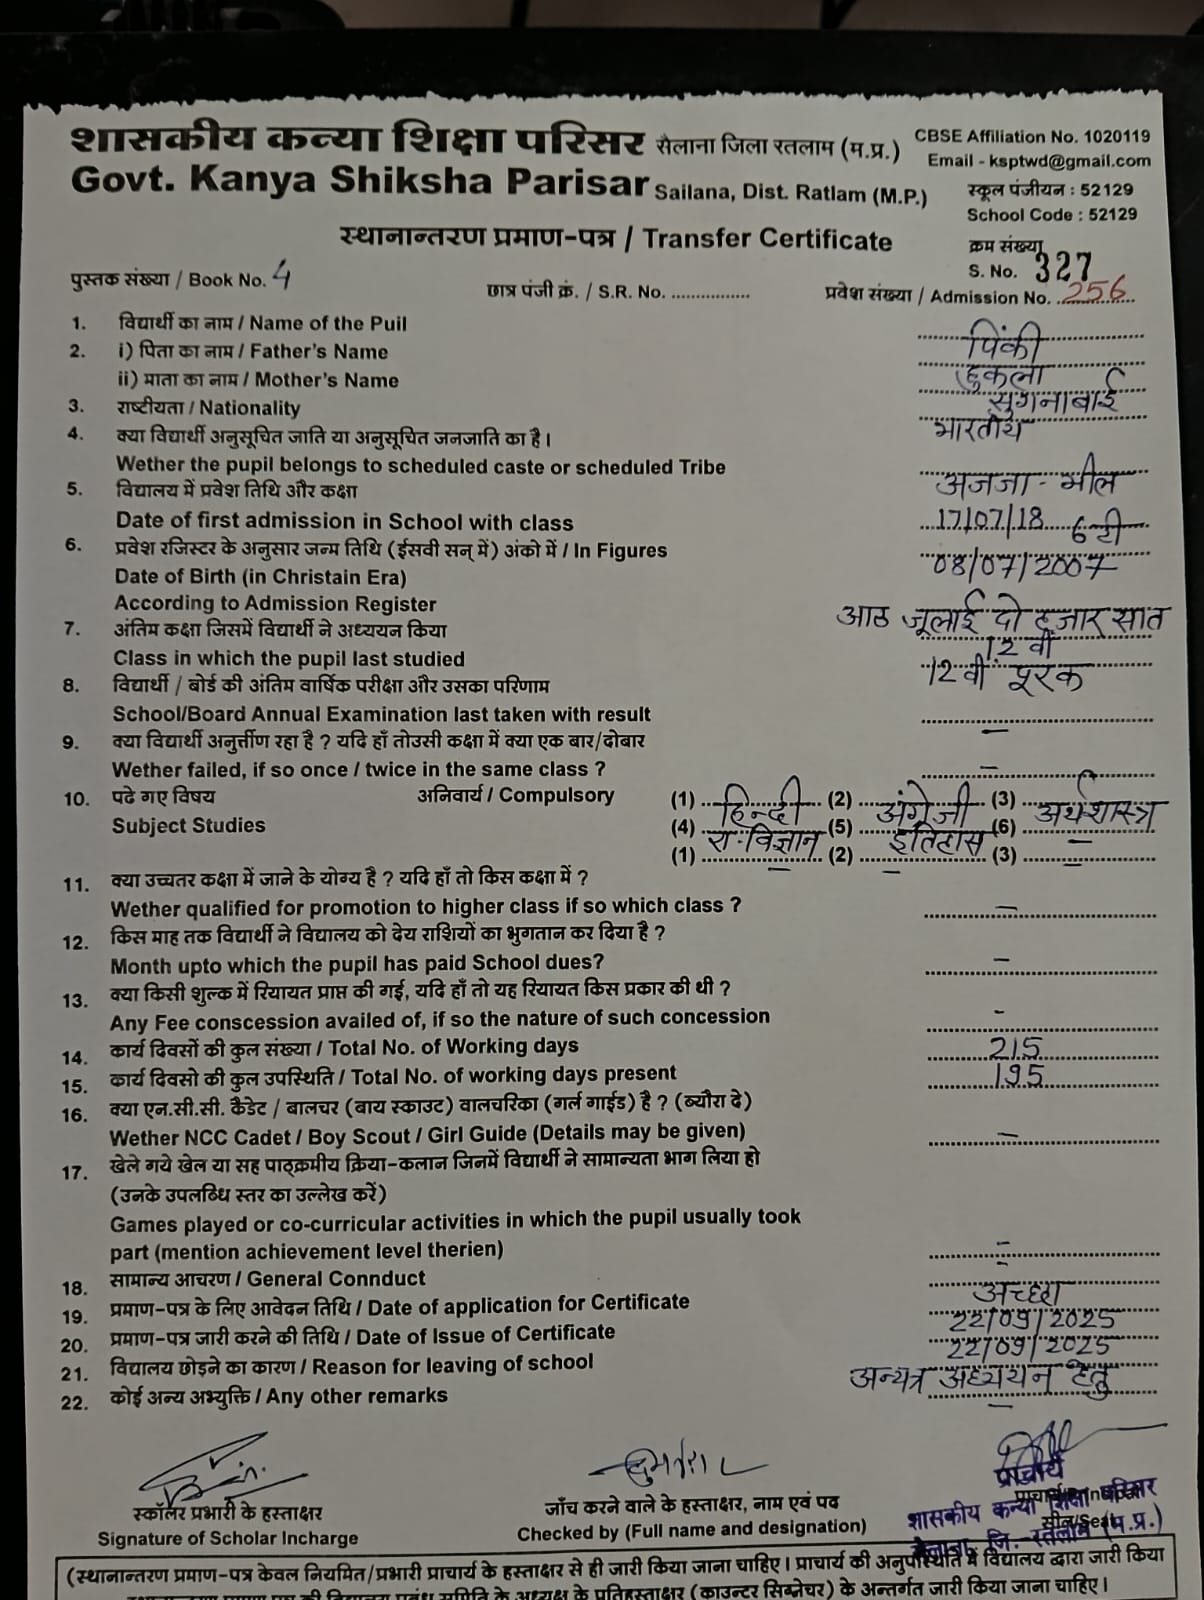 शासकीय कन्या शिक्षा परिसर सैलाना जिला रतलाम (म.प्र.)
CBSE Affiliation No. 1020119
Govt. Kanya Shiksha Parisar Sailana, Dist. Ratlam (M.P.)
Email - ksptwd@gmail.com
स्कूल पंजीयन : 52129
School Code : 52129
स्थानान्तरण प्रमाण-पत्र / Transfer Certificate
क्रम संख्या
S. No. 327
पुस्तक संख्या / Book No. 4
छात्र पंजी क्रं. / S.R. No. ................
प्रवेश संख्या / Admission No. 256
1. विद्यार्थी का नाम / Name of the Puil पिंकी
2. i) पिता का नाम / Father's Name हुकला
ii) माता का नाम / Mother's Name सुगनाबाई
3. राष्टीयता / Nationality भारतीय
4. क्या विद्यार्थी अनुसूचित जाति या अनुसूचित जनजाति का है।
Wether the pupil belongs to scheduled caste or scheduled Tribe अजजा - भील
5. विद्यालय में प्रवेश तिथि और कक्षा
Date of first admission in School with class 17/07/18 6 टी
6. प्रवेश रजिस्टर के अनुसार जन्म तिथि (ईसवी सन् में) अंको में / In Figures 08/07/2007
Date of Birth (in Christain Era)
According to Admission Register आठ जूलाई दो हजार सात
7. अंतिम कक्षा जिसमें विद्यार्थी ने अध्ययन किया
Class in which the pupil last studied 12 वीं
8. विद्यार्थी / बोर्ड की अंतिम वार्षिक परीक्षा और उसका परिणाम 12 वीं पूरक
School/Board Annual Examination last taken with result
9. क्या विद्यार्थी अनुर्त्तीण रहा है ? यदि हाँ तोउसी कक्षा में क्या एक बार/दोबार –
Wether failed, if so once / twice in the same class ? –
10. पढे गए विषय अनिवार्य / Compulsory (1) हिन्दी (2) अंग्रेजी (3) अर्थशास्त्र
Subject Studies (4) रा. विज्ञान (5) इतिहास (6) –
(1) – (2) – (3) –
11. क्या उच्चतर कक्षा में जाने के योग्य है ? यदि हाँ तो किस कक्षा में ?
Wether qualified for promotion to higher class if so which class ? –
12. किस माह तक विद्यार्थी ने विद्यालय को देय राशियों का भुगतान कर दिया है ?
Month upto which the pupil has paid School dues? –
13. क्या किसी शुल्क में रियायत प्राप्त की गई, यदि हाँ तो यह रियायत किस प्रकार की थी ?
Any Fee conscession availed of, if so the nature of such concession -
14. कार्य दिवसों की कुल संख्या / Total No. of Working days 215
15. कार्य दिवसो की कुल उपस्थिति / Total No. of working days present 195
16. क्या एन.सी.सी. कैडेट / बालचर (बाय स्काउट) वालचरिका (गर्ल गाईड) है ? (ब्यौरा दे)
Wether NCC Cadet / Boy Scout / Girl Guide (Details may be given) –
17. खेले गये खेल या सह पाठ्क्रमीय क्रिया-कलान जिनमें विद्यार्थी ने सामान्यता भाग लिया हो
(उनके उपलब्धि स्तर का उल्लेख करें)
Games played or co-curricular activities in which the pupil usually took
part (mention achievement level therien) –
18. सामान्य आचरण / General Connduct अच्छा
19. प्रमाण-पत्र के लिए आवेदन तिथि / Date of application for Certificate 22/09/2025
20. प्रमाण-पत्र जारी करने की तिथि / Date of Issue of Certificate 22/09/2025
21. विद्यालय छोड़ने का कारण / Reason for leaving of school अन्यत्र अध्ययन हेतु
22. कोई अन्य अभ्युक्ति / Any other remarks –
प्राचार्य
स्कॉलर प्रभारी के हस्ताक्षर
जाँच करने वाले के हस्ताक्षर, नाम एवं पद
शासकीय कन्या शिक्षा परिसर
Signature of Scholar Incharge
Checked by (Full name and designation)
सील/Seal
सैलाना, जि.- रतलाम (म.प्र.)
(स्थानान्तरण प्रमाण-पत्र केवल नियमित/प्रभारी प्राचार्य के हस्ताक्षर से ही जारी किया जाना चाहिए। प्राचार्य की अनुपस्थिति में विद्यालय द्वारा जारी किया
के अध्यक्ष के प्रतिहस्ताक्षर (काउन्टर सिग्नेचर) के अन्तर्गत जारी किया जाना चाहिए।